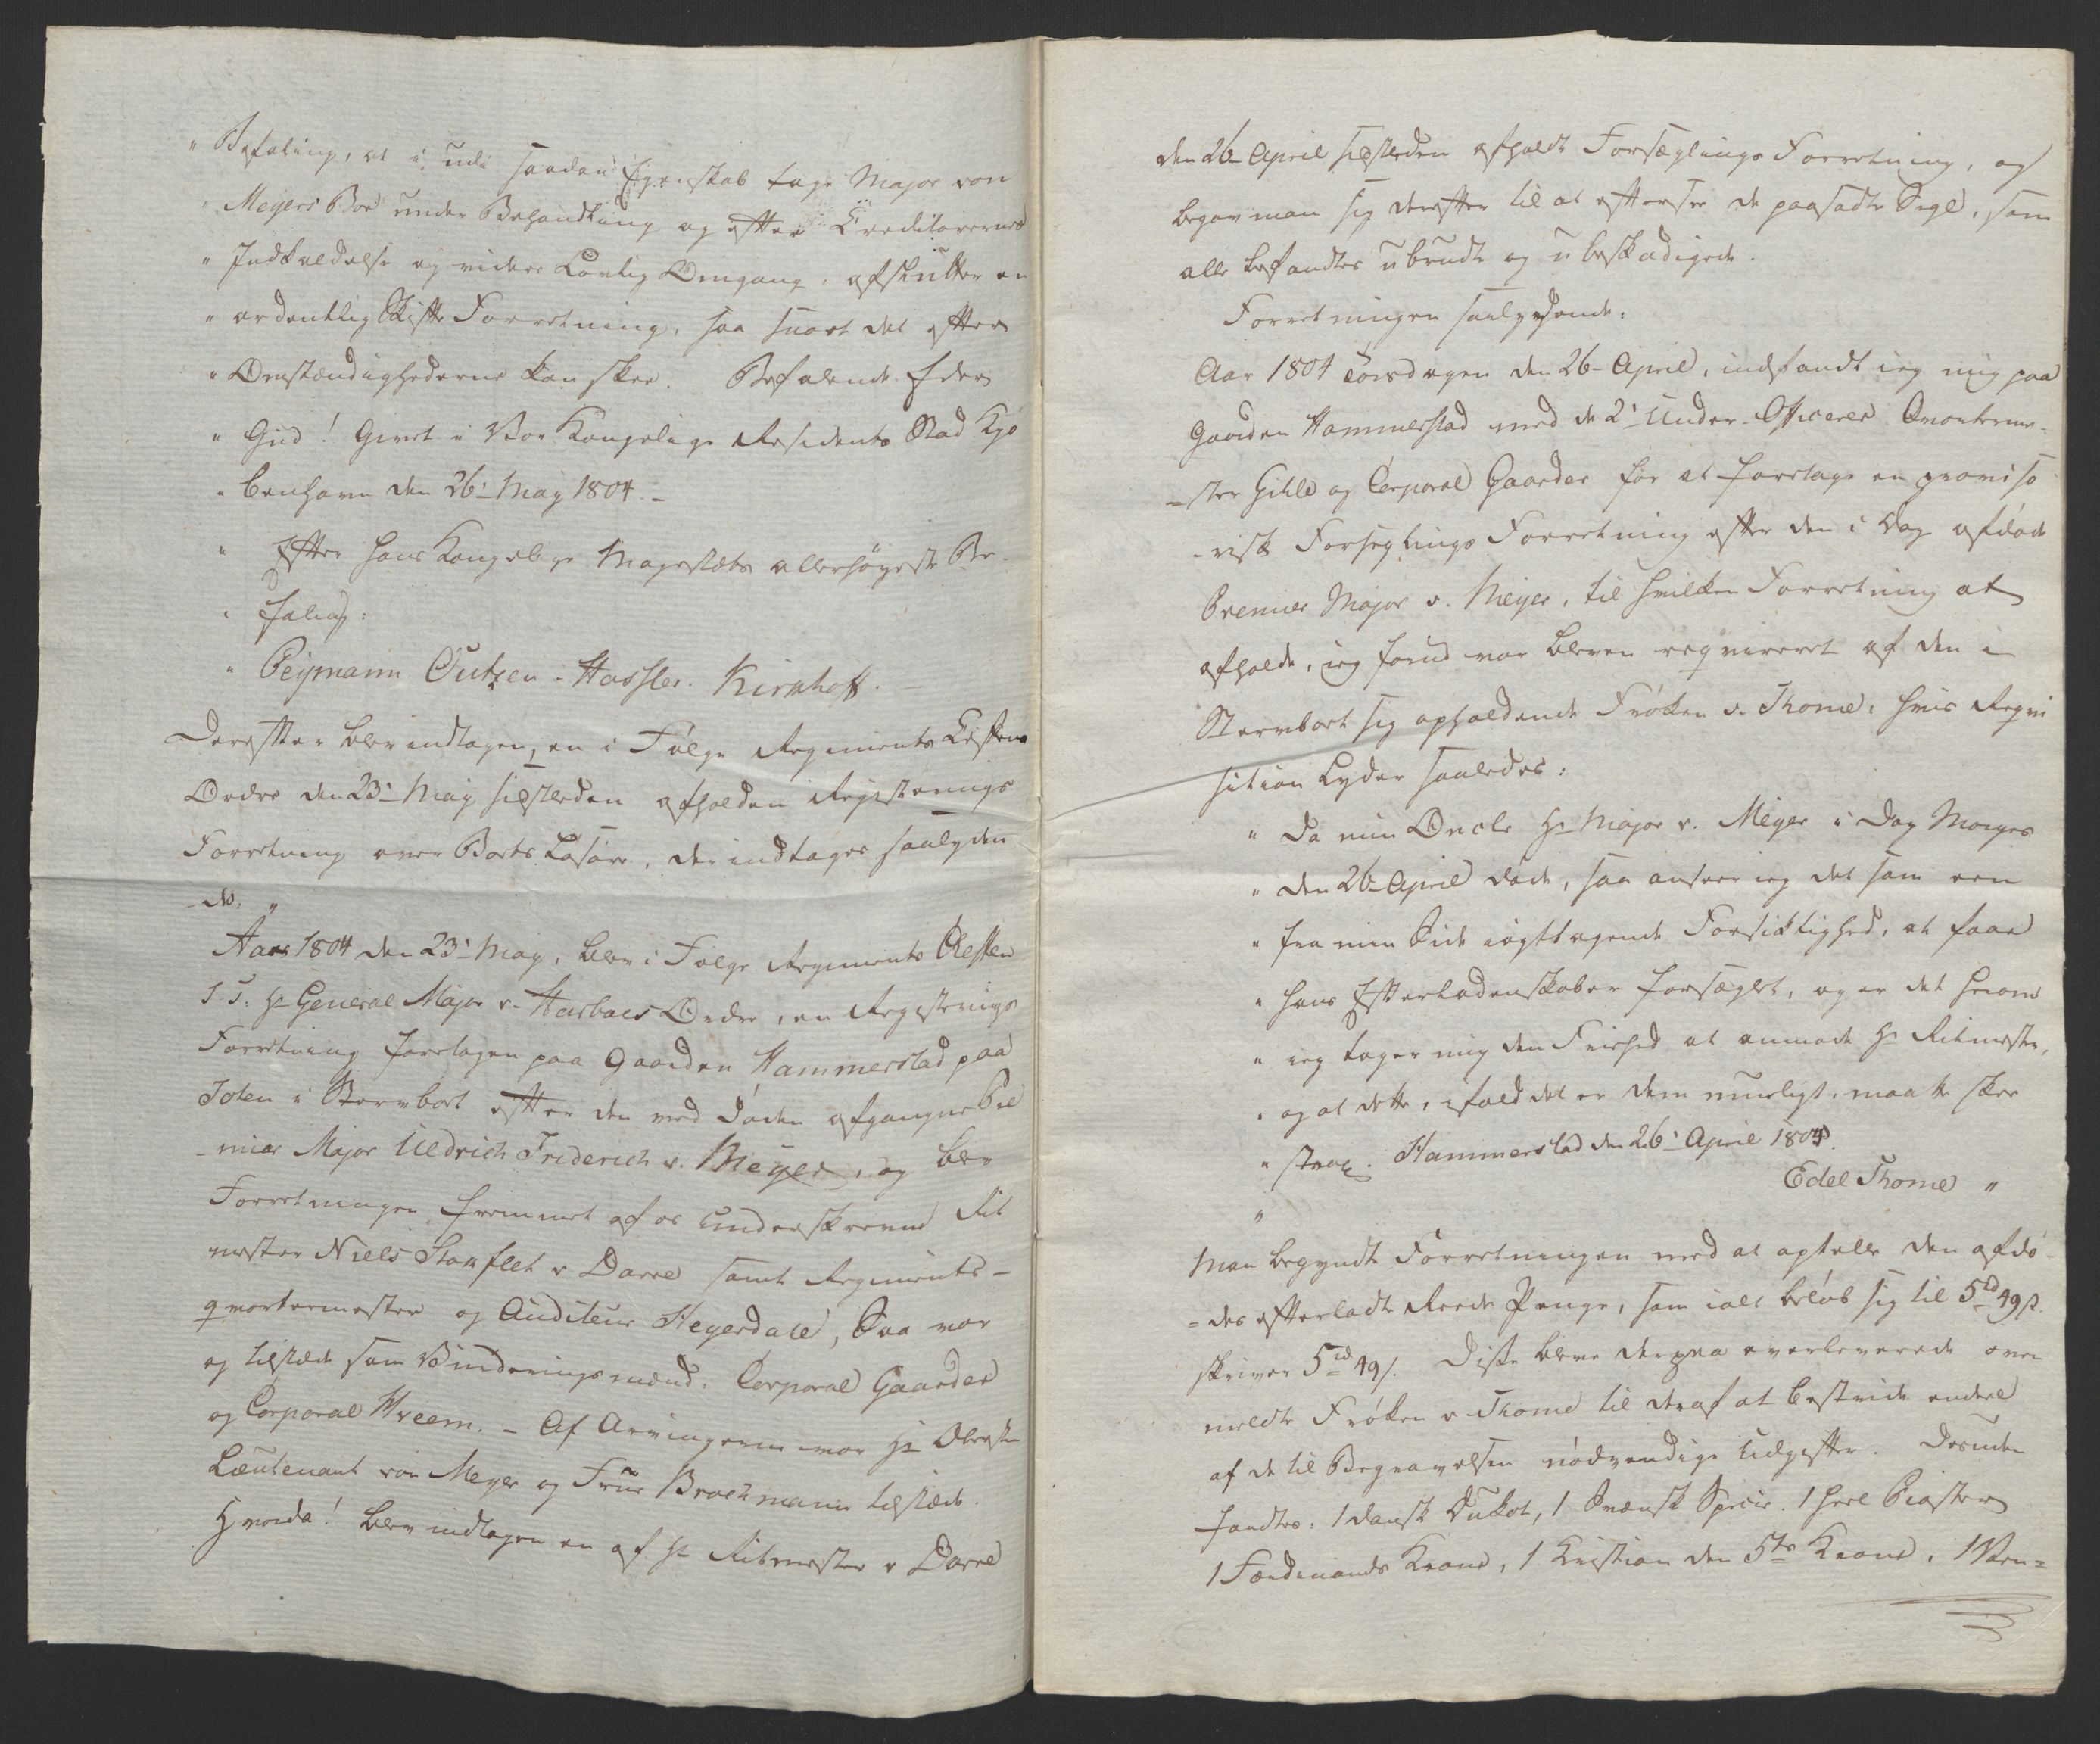 " Befaling, at i udi saadan Egenskab tage Major von
Meyers Boe under Behandling og efter Creditorernes
" Indkaldelse og videre Lovlig Omgang, afslutter en
" ordentlig Skifte Forretning, saa snart det efter
" Omstændighederne kan skee. Befalende Eder
" Gud! Givet i Vor Kongelige Residents Stad Kjø
" benhavn den 26' May 1804 -
" Efter Hans Kongelige Mayestæts allerhöyeste Be-
" faling:
" Peymann Outzen - Hassler. Kirkhoff.
Derefter blev indtagen, en i Følge Regiments Chefens
Ordre den 23' May sidstleden afholden Registerings
Forretning over Boets Løsøre, der indtages saalyden
-de: "
Aar 1804 den 23' May, blev i Følge Regiments Cheffen
S. T. Hr General Major v. Harboes Ordre, en Registrerings
Forretning foretagen paa Gaarden Hammerstad paa
Toten i Stervboet efter den ved Døden afgangne Pre
-mier Major Uldrich Friderich v. Meyer, og blev
Forretningen fremmet af os underskrevne Rit
mester Niels Stockfleth v Darre samt Regiments-
qvartermester og Auditeur Heyerdahl, Saa var
og tilstæde som Vurderingsmænd, Corporal Gaarder
og Corporal Kreem. - Af Arvingerne var Hr Oberst
Lieutenant von Meyer og Frue Brochmann tilstæde.
Hvorda! blev indtagen en af Hr Ritmester v Darre
den 26 April sidstleden afholdt Forsæglings Forretning, og
begav man sig derefter til at efterse de paasadte Segl, som
alle befandtes ubrudt og ubeskadigede.
Forretningen saalydende:
Aar 1804 Torsdagen den 26- April, indfandt ieg mig paa
Gaarden Hammerstad med de 2' Under-Officerer Qvarterme-
-ster Gihle og Corporal Gaarder for at foretage en proviso
-risk Forseglings Forretning efter den i Dag afdøde
Premier Major v. Meyer, til hvilken Forretning at
afholde, ieg forud var bleven reqvireret af den i
Stervboet sig opholdende Frøken v. Thome, hvis Reqvi
sition Lyder saaledes:
" Da min Oncle Hr Major v. Meyer i Dag Morges
" den 26- April døde, saa anseer ieg det som een
" fra min Side iagttagende Forsiktighed, at faae
" hans Efterladenskaber forsæglet, og er det hvorom
" ieg tager mig den Friehed at anmode Hr Ritmester,
" og at dette, ifald det er Dem mueligt, maatte skee
" strax. Hammerstad den 26' April 1804.
Edel Thome "
"
Man begyndt Forretningen med at optelle den afdø-
-des efterladte Reede Penge, som ialt beløb sig til 5 rd 49 s.
skriver 5 rd 49 s. Diste bleve derpaa overleverede oven
meldte Frøken v Thome til deraf at bestride endeel
af de til Begravelsen nødvendige Udgifter. Desuden
fandtes: 1 dansk Dukat, 1 Svensk Specie. 1 heel Piaster
1 Ferdinands Krone, 1 Kristian den 5te Krone, 1 Ven=